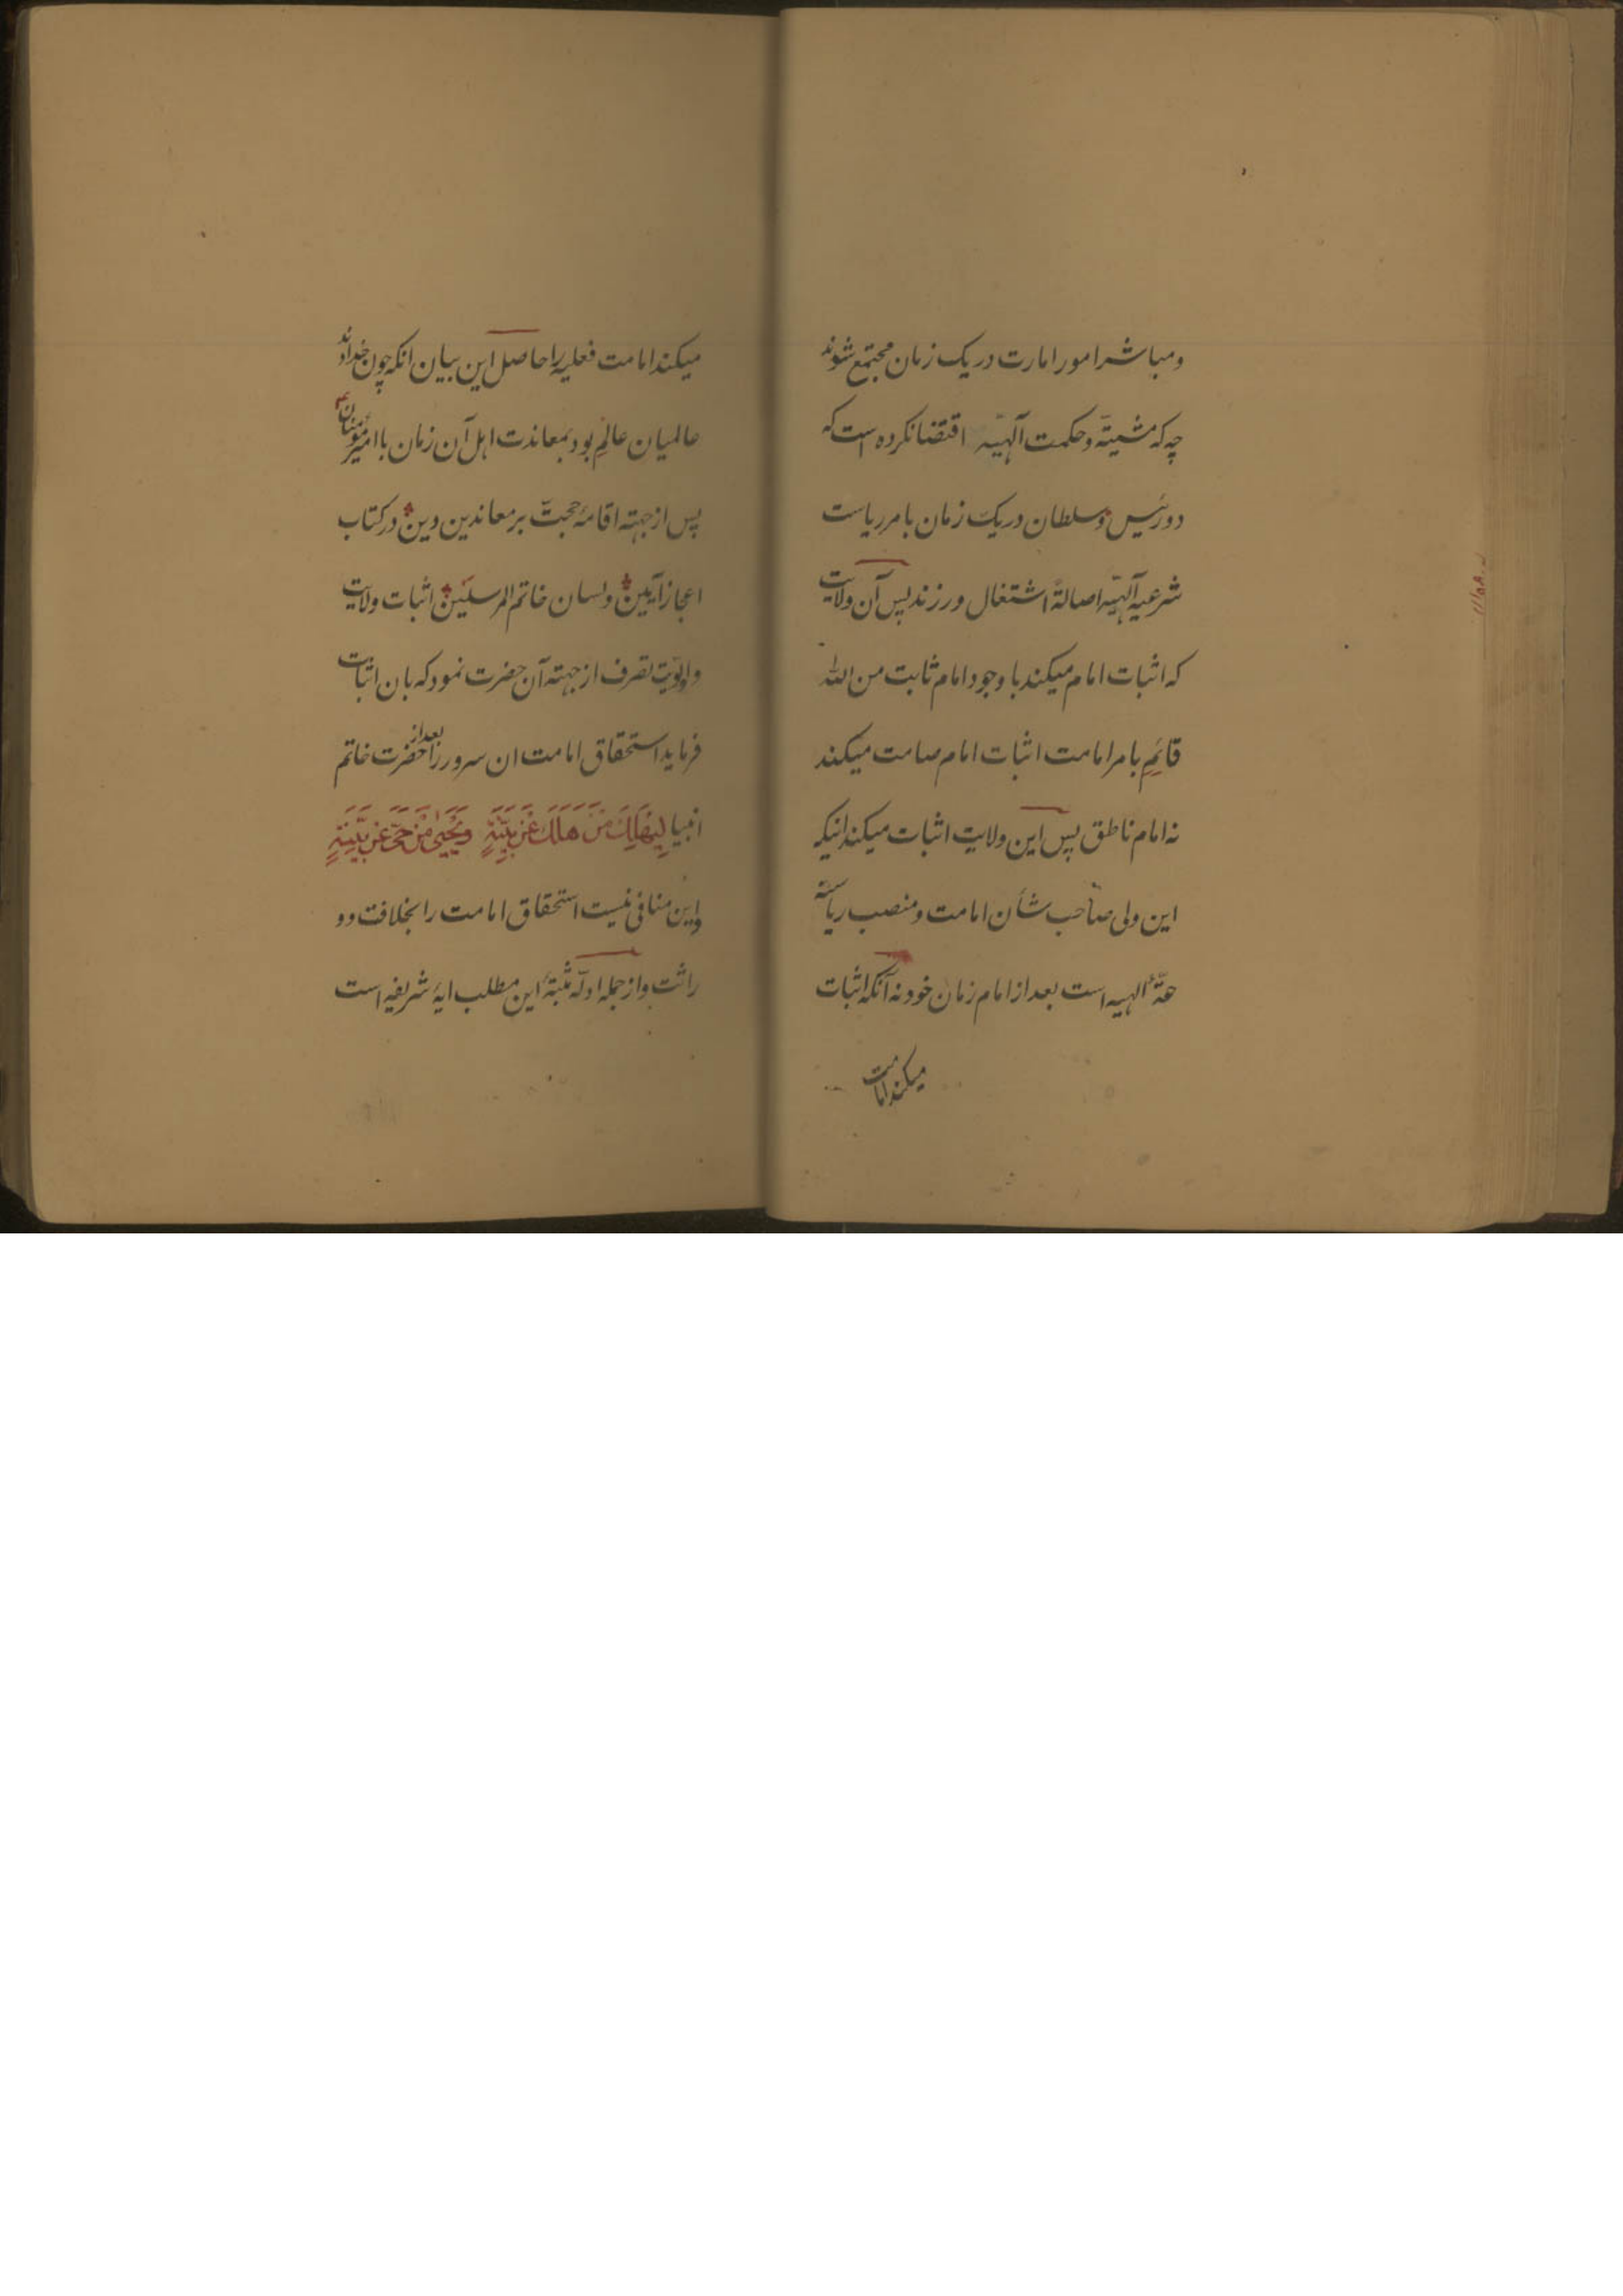 ومباشر امور امارت در یک زمان مجتمع شوند
چه که مشیّة و حکمت آلهیّه اقتضا نکرده است که
دو رئیس و سلطان در یک زمان بامر ریاست
شرعیه آلهیّه اصالةً اشتغال ورزند پس آن ولایت
که اثبات امام میکند با وجود امام ثابت من الله
قائم بامر امامت اثبات امام صامت میکند
نه امام ناطق پس این ولایت اثبات میکند اینکه
این ولی صاحب شأن امامت و منصب ریاسة
عامّه الهیه است بعد از امام زمان خود نه آنکه اثبات
میکند امامت
میکند امامت فعلیه را حاصل این بیان انکه چون خداوند
عالمیان عالم بود بمعاندت اهل آن زمان با امیر مؤمنان ع
پس از جهته اقامهٔ حجت بر معاندین دین در کتاب
اعجاز آیین ولسان خاتم المرسلین اثبات ولایت
واولویت تصرف از جهته آن حضرت نمود که بان اثبات
فرماید استحقاق امامت ان سرور را بعد از حضرت خاتم
انبیا لِیَهْلِكَ مَنْ هَلَكَ عَنْ بَیِّنَةٍ وَیَحْییٰ مَنْ حَیَّ عَنْ بَیِّنَةٍ
واین منافی نیست استحقاق امامت را بخلافت و و
راثت واز جمله ادلّه مثبتهٔ این مطلب ایهٔ شریفه است